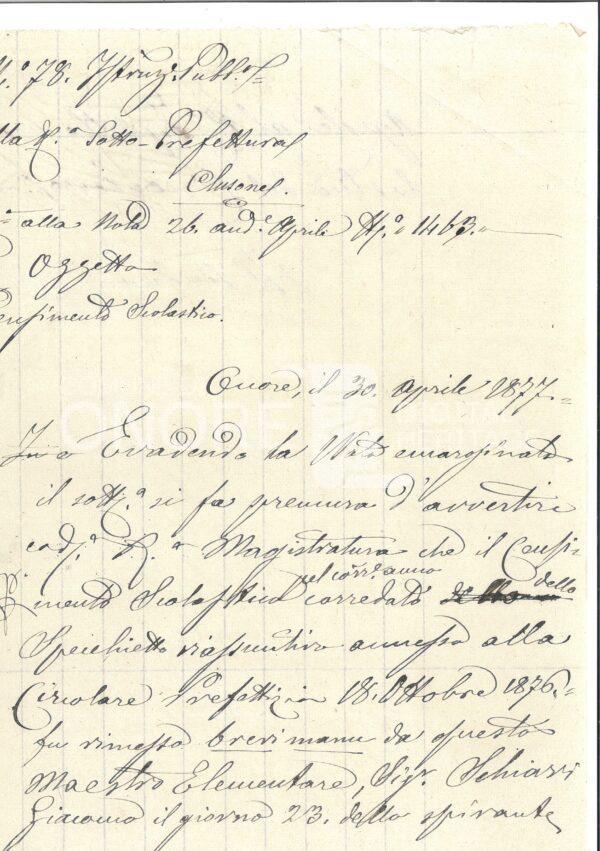 N.° 78. Istruz. Pubbl.
alla R.ª Sotto-Prefettura
Clusone.
alla Nota 26. and.e Aprile N.° 1463.
Oggetto
Censimento Scolastico.
Onore, il 30. Aprile 1877.=
Evadendo la Nota emarginata
il sott.º si fa premura d'avvertire
cod.ª R.ª Magistratura che il Censi=
nel corr.e anno
mento Scolastico corredato dello
Specchietto riassuntivo annesso alla
Circolare Prefettizia 18. Ottobre 1876.=
fu rimesso brevi manu da questo
Maestro Elementare, Sigr. Schiavi
Giacomo il giorno 23. dello spirante